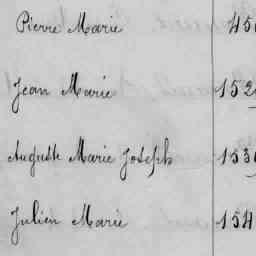 Pierre Marie 45
Jean Marie 152
Auguste Marie Joseph 153
Julien Marie 154